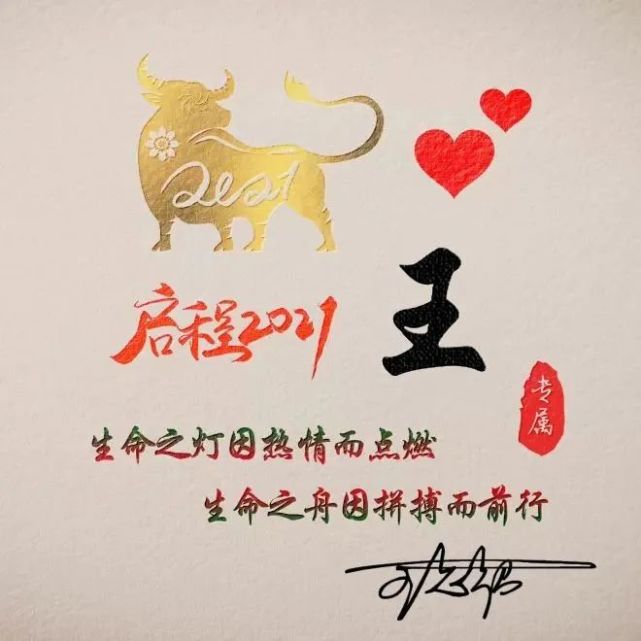 2021
启程2021
王
专属
生命之灯因热情而点燃
生命之舟因拼搏而前行